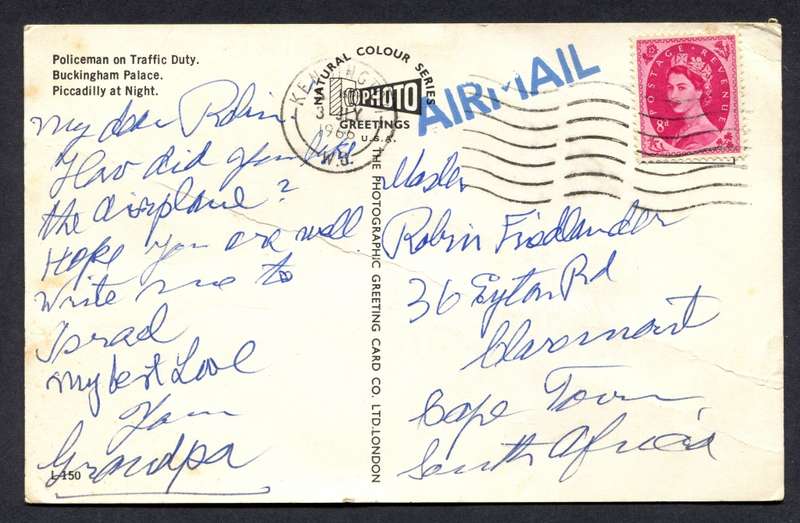 Policeman on Traffic Duty.
Buckingham Palace.
Piccadilly at Night.
My dear Robin
How did you like
the airplane?
Hope you are well
write me to
Israel
My best Love
Your
Grandpa
L-150
NATURAL COLOUR SERIES
PHOTO
GREETINGS
U.S.A.
THE PHOTOGRAPHIC GREETING CARD CO. LTD. LONDON
1966
W.8.
AIRMAIL
POSTAGE REVENUE
8d
Master
Robin Friedlander
36 Eyton Rd
Claremont
Cape Town
South Africa